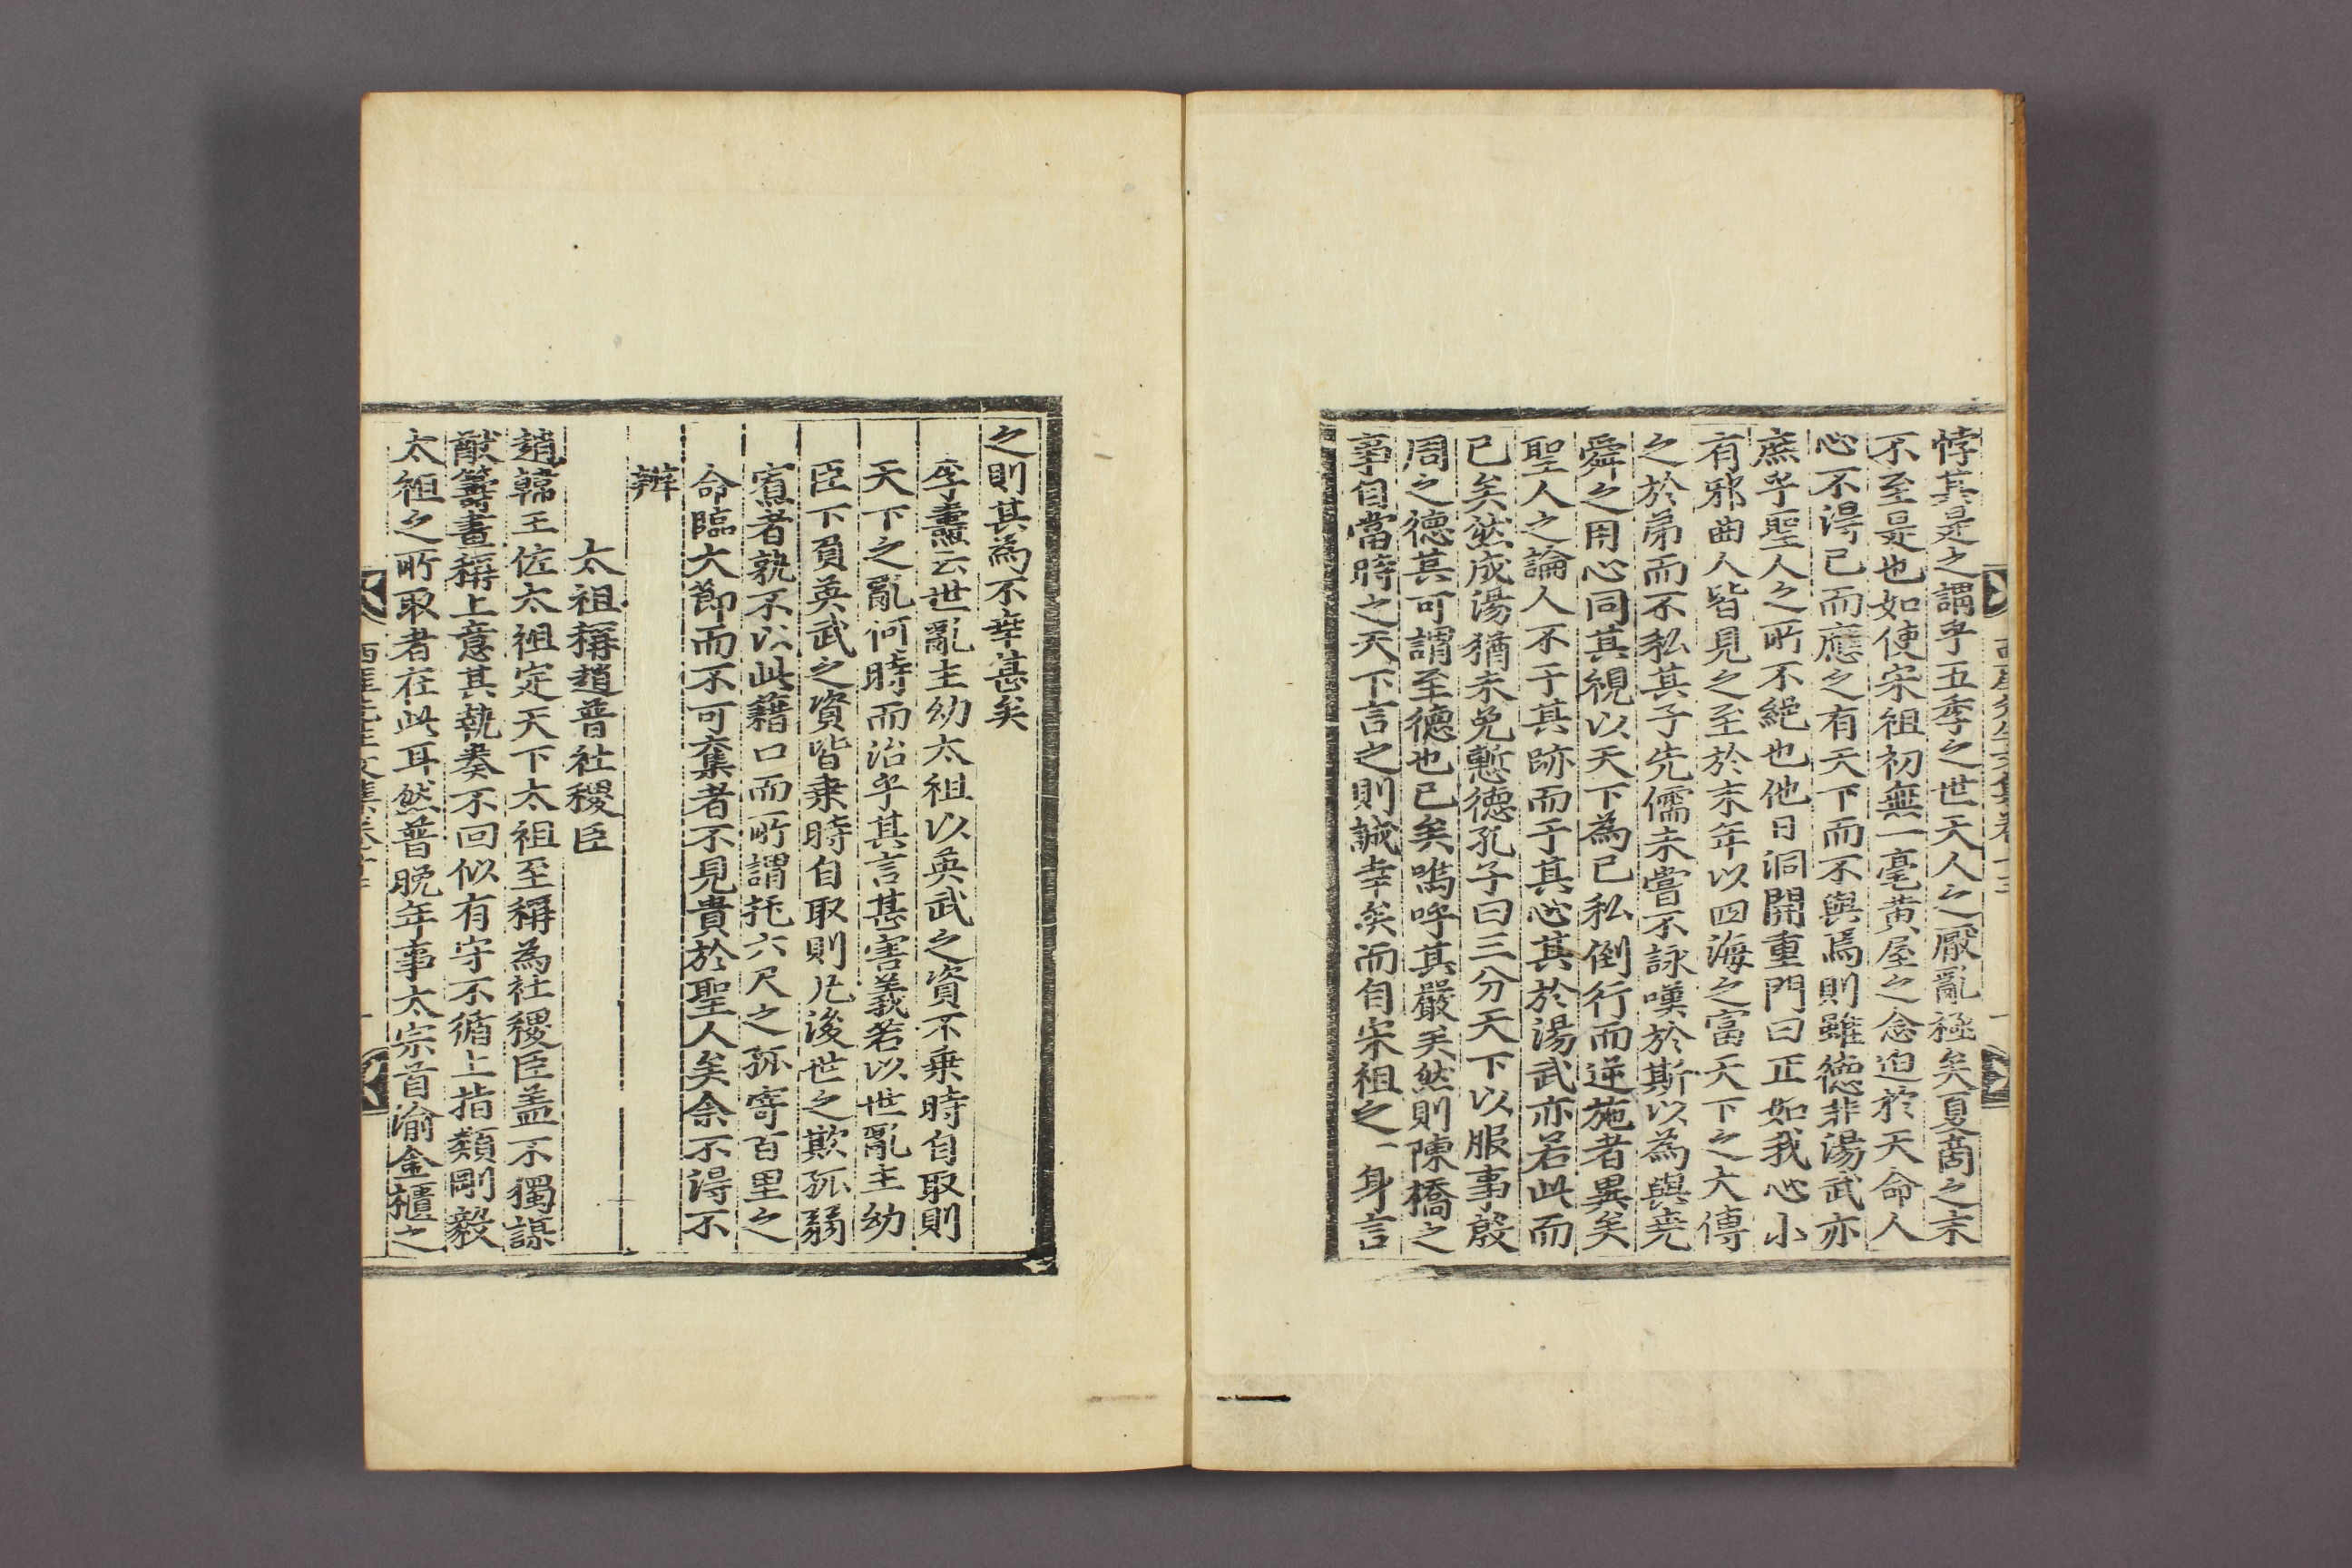 悖其是之謂乎五季之世天人之厭亂極矣夏商之末
不至是也如使宋祖初無一毫黃屋之念迫於天命人
心不得已而應之有天下而不與焉則雖德非湯武亦
庶乎聖人之所不絕也他日洞開重門曰正如我心小
有邪曲人皆見之至於末年以四海之富天下之大傳
之於弟而不私其子先儒未嘗不詠嘆於斯以為與堯
舜之用心同其視以天下為己私倒行而逆施者異矣
聖人之論人不于其跡而于其心其於湯武亦若此而
已矣然成湯猶未免慙德孔子曰三分天下以服事殷
周之德其可謂至德也已矣嗚呼其嚴矣然則陳橋之
事自當時之天下言之則誠幸矣而自宋祖之一身言
之則其為不幸甚矣
李燾云世亂主幼太祖以英武之資不乗時自取則
天下之亂何時而治乎其言甚害義若以世亂主幼
臣下負英武之資皆乗時自取則凡後世之欺孤弱
寡者孰不以此藉口而所謂托六尺之孤寄百里之
命臨大節而不可奪者不見貴於聖人矣余不得不
辨
太祖稱趙普社稷臣
趙韓王佐太祖定天下太祖至稱為社稷臣盖不獨謀
猷籌畫稱上意其執奏不回似有守不循上指類剛毅
太祖之所取者在此耳然普晚年事太宗首渝金櫃之
西厓先生文集卷十五